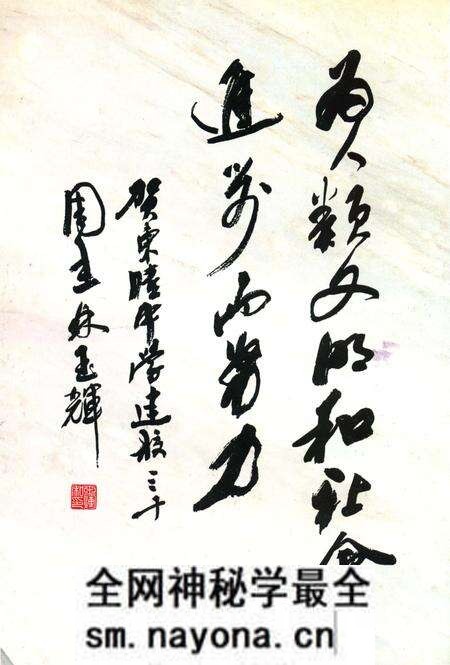 为人類文明和社会
進步而努力
贺東中学建校三十
周年 林玉輝
全网神秘学最全
sm.nayona.cn